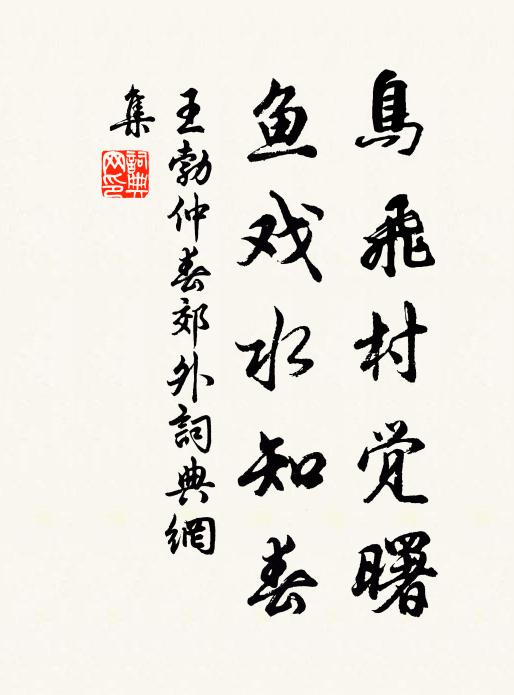 鳥飛村觉曙
鱼戏水知春
王勃仲春郊外詞典網
集
詞典
网印